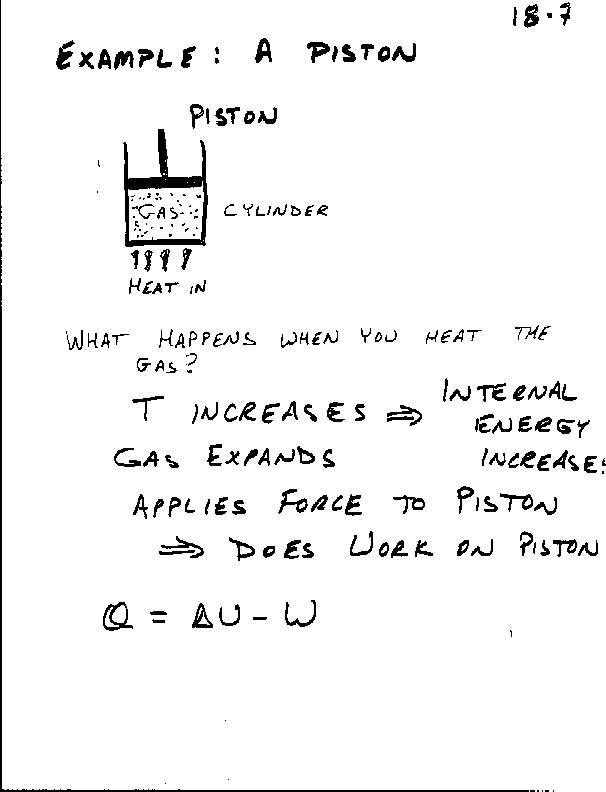 18-7
EXAMPLE: A PISTON
PISTON
GAS
CYLINDER
HEAT IN
WHAT HAPPENS WHEN YOU HEAT THE
GAS?
T INCREASES ⇒ INTERNAL
ENERGY
INCREASES
GAS EXPANDS
APPLIES FORCE TO PISTON
⇒ DOES WORK ON PISTON
Q = ΔU - W